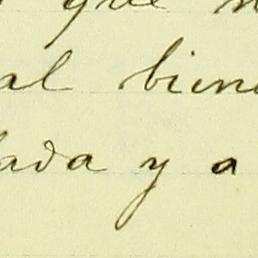 que
al bien
ada y a